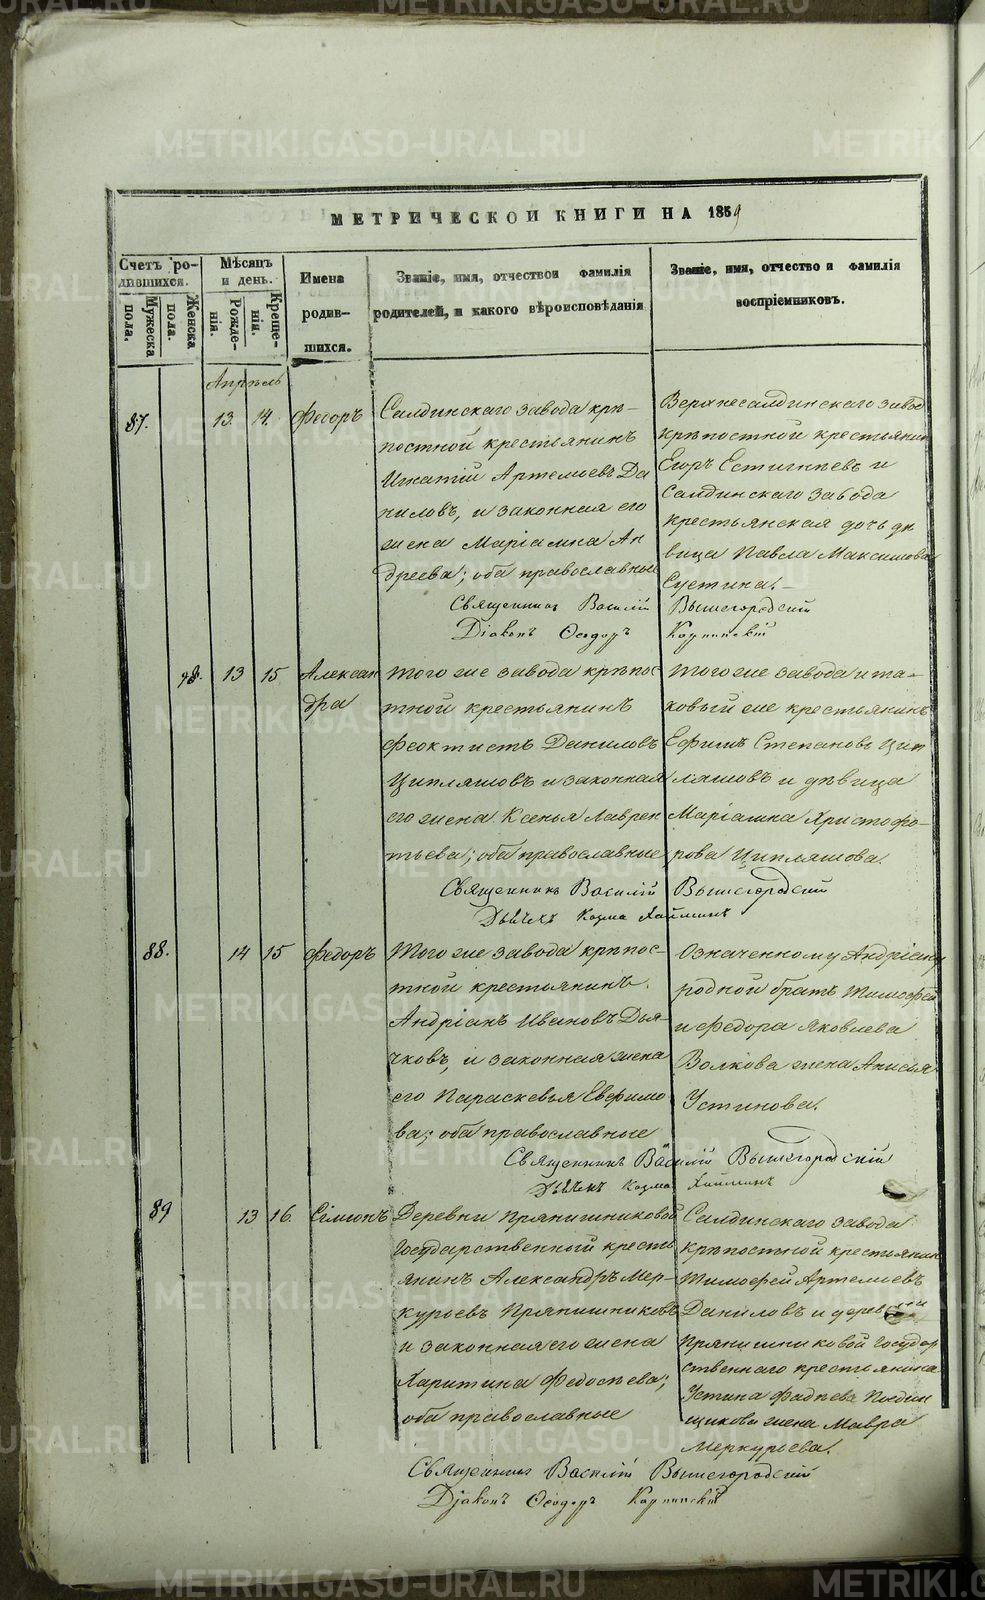 METRIKI.GASO-URAL.RU
МЕТРИЧЕСКОЙ КНИГИ НА 1859
Счетъ ро-
дившихся.
Мужеска
пола.
Женска
пола.
Мѣсяцъ
и день.
Рожде-
нія.
Креще-
нія.
Имена
родив-
шихся.
Званіе, имя, отчествои фамилія
родителей, и какого вѣроисповѣданія
Званіе, имя, отчество и фамилія
воспріемниковъ.
Апрѣль
87.
13.
14.
Ѳеоръ
Салдинскаго завода крѣ-
постной крестьянинъ
Игнатій Артемьевъ Да
ниловъ, и законная его
жена Маріамна Ан
дреева; оба православные
Верхнесалдинскаго завод
крѣпостной крестьянин
Егоръ Естигнѣевъ и
Салдинскаго завода
крестьянская дочь дѣ
вица Павла Максимова
Сустина.-
Священникъ Василій Вышегородскій
Діаконъ Ѳеодоръ Карпинскій
98.
13
15
Алексан
дра
Того же завода крѣпос
тной крестьянинъ
Феоктистъ Даниловъ
Ципляшовъ и законная
его жена Ксенья Лаврен
тьева; оба православные
Того же завода и та-
ковый же крестьянинъ
Ефимъ Степановъ Цип
ляшовъ и дѣвица
Маріамна Христофо-
рова Циплашова.
Священникъ Василій Вышегородскій
Дьячекъ Козма Хайминъ
88.
14
15
Федоръ
Того же завода крѣпос-
тной крестьянинъ
Андріанъ Ивановъ Дья-
чковъ, и законная жена
его Параскевья Евфимо
ва; оба православные
Означенному Андріану
родной братъ Тимофей
и Федора Яковлева
Волкова жена Анисья
Устинова.
Священникъ Василій Вышегородскій
Дьячекъ Козма Хайминъ
89
13
16.
Сімеонъ
Деревни Прянишниковой
Государственный кресть
янинъ Александръ Мер-
курьевъ Прянишниковъ
и законная его жена
Харитина Федосѣева;
оба православные
Салдинскаго завода
крѣпостной крестьянин
Тимофей Артемьевъ
Даниловъ и деревни
Прянишниковой Государ
ственнаго крестьянина
Устина Фадѣева
жена Мавра
Меркурьева.
Священникъ Василій Вышегородскій
Діаконъ Ѳеодоръ Карпинскій